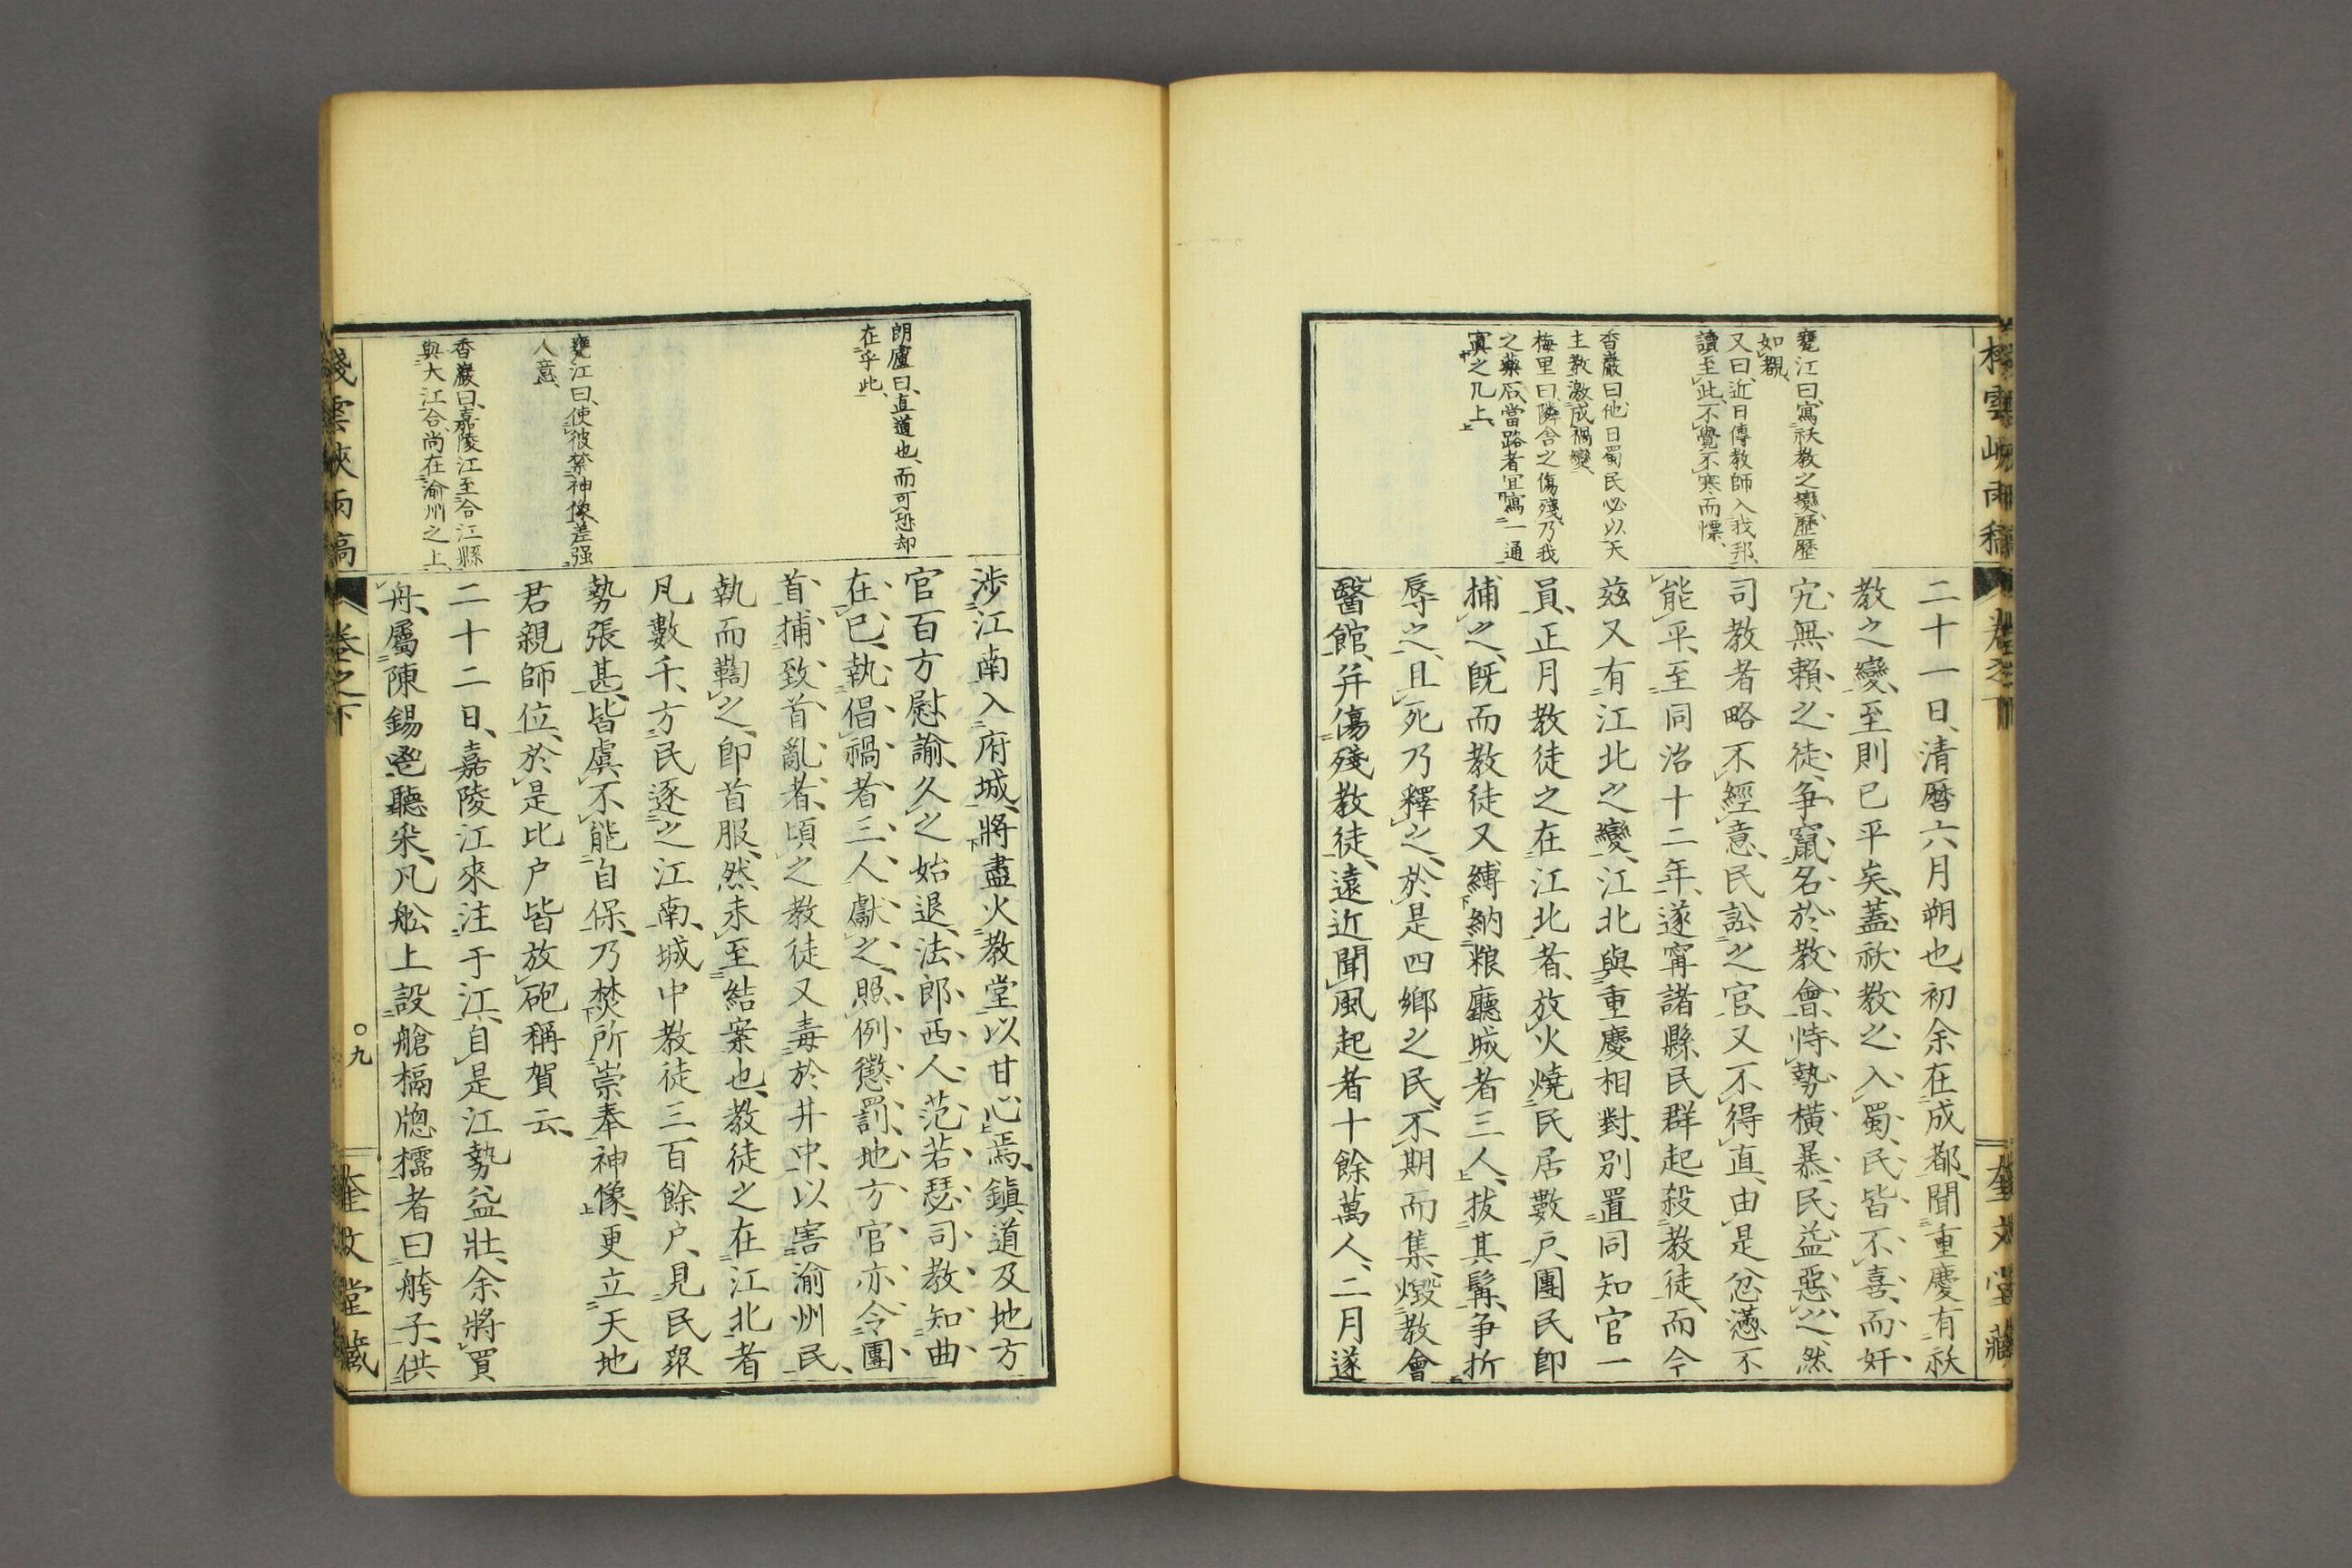 棧雲峽雨稿
卷之下
奎文堂藏
甕江曰、寫祅教之變、歷歷
如覩、
又曰、近日傳教師入我邦、
讀至此、不覺不寒而慄、
香巖曰、他日蜀民必以天
主教激成禍變、
梅里曰、隣舍之傷殘、乃我
之藥石、當路者宜寫一通
寘之几上、
二十一日、清曆六月朔也、初余在成都、聞重慶有祅
教之變、至則已平矣、蓋祅教之入蜀、民皆不喜、而奸
宄無賴之徒、争竄名於教會、恃勢橫暴、民益惡之、然
司教者略不經意、民訟之官、又不得直、由是忿懣不
能平、至同治十二年、遂寗諸縣民群起殺教徒、而今
茲又有江北之變、江北與重慶相對、別置同知官一
員、正月教徒之在江北者、放火燒民居數戶、團民即
捕之、既而教徒又縛納粮廳城者三人、拔其髯、争折
辱之、且死乃釋之、於是四鄉之民、不期而集、燬教會
醫館、并傷殘教徒、遠近聞風起者十餘萬人、二月遂
朗廬曰、直道也、而可恐却
在乎此、
甕江曰、使彼禁神像差强
人意、
香巖曰、嘉陵江至合江縣
與大江合、尚在渝州之上、
涉江南入府城、將盡火教堂以甘心焉、鎮道及地方
官百方慰諭、久之始退、法郎西人范若瑟司教、知曲
在己、執倡禍者三人獻之、照例懲罰、地方官亦令團
首捕致首亂者、頃之教徒又毒於井中、以害渝州民、
執而鞫之、即首服、然未至結案也、教徒之在江北者
凡數千、方民逐之江南、城中教徒三百餘户、見民衆
勢張甚、皆虞不能自保、乃焚所崇奉神像、更立天地
君親師位、於是比户皆放砲稱賀云、
二十二日、嘉陵江來注于江、自是江勢益壯、余將買
舟、屬陳錫鬯聽采、凡舩上設艙槅牕櫺者曰舿子、供
棧雲峽雨稿
卷之下
○九
奎文堂藏